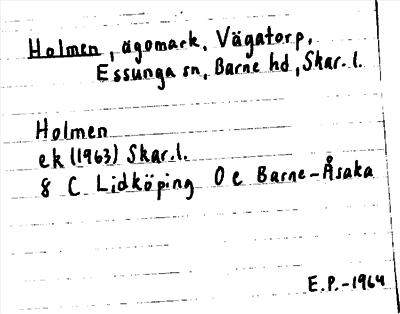 Holmen, ägomark, Vägatorp,
Essunga sn, Barne hd, Skar.l.
Holmen
ek (1963) Skar.l.
8 C Lidköping 0 e Barne-Åsaka
E.P.-1964